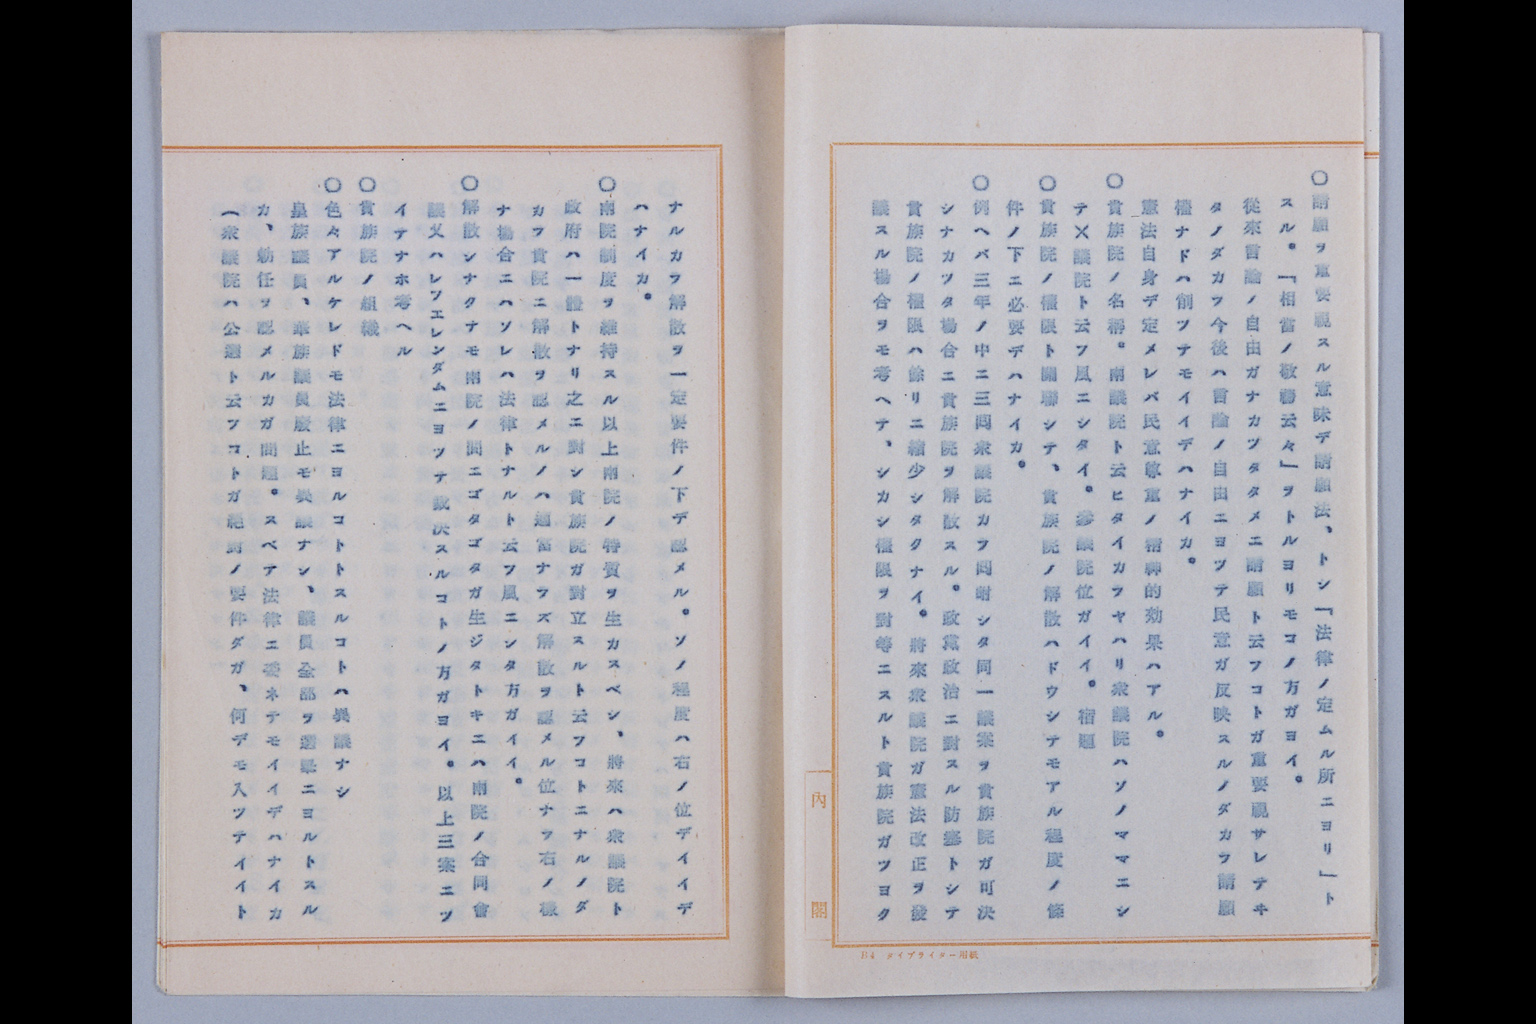 〇請願ヲ重要視スル意味デ請願法、トシ『法律ノ定ムル所ニヨリ』ト
スル。『相當ノ敬禮云々』ヲトルヨリモコノ方ガヨイ。
從來言論ノ自由ガナカツタタメニ請願ト云フコトガ重要視サレテヰ
タノダカラ今後ハ言論ノ自由ニヨツテ民意ガ反映スルノダカラ請願
權ナドハ削ツテモイイデハナイカ。
憲法自身デ定メレバ民意尊重ノ精神的効果ハアル。
〇貴族院ノ名稱。兩議院ト云ヒタイカラヤハリ衆議院ハソノママニシ
テ✕議院ト云フ風ニシタイ。參議院位ガイイ。宿題
〇貴族院ノ權限ト關聯シテ、貴族院ノ解散ハドウシテモアル程度ノ條
件ノ下ニ必要デハナイカ。
〇例ヘバ三年ノ中ニ三囘衆議院カラ囘附シタ同一議案ヲ貴族院ガ可決
シナカツタ場合ニ貴族院ヲ解散スル。政黨政治ニ對スル防塞トシテ
貴族院ノ權限ハ餘リニ縮少シタクナイ。將來衆議院ガ憲法改正ヲ發
議スル場合ヲモ考ヘテ、シカシ權限ヲ對等ニスルト貴族院ガツヨク
內閣
B4 タイプライター用紙
ナルカラ解散ヲ一定要件ノ下デ認メル。ソノ程度ハ右ノ位デイイデ
ハナイカ。
〇兩院制度ヲ維持スル以上兩院ノ特質ヲ生カスベシ、將來ハ衆議院ト
政府ハ一體トナリ之ニ對シ貴族院ガ對立スルト云フコトニナルノダ
カラ貴院ニ解散ヲ認メルノハ適當ナラズ解散ヲ認メル位ナラ右ノ樣
ナ場合ニハソレハ法律トナルト云フ風ニシタ方ガイイ。
〇解散シナクナモ兩院ノ間ニゴタゴタガ生ジタトキニハ兩院ノ合同會
議又ハレフエレンダムニヨツテ裁決スルコトノ方ガヨイ。以上三案ニツ
イテナホ考ヘル
〇貴族院ノ組織
〇色々アルケレドモ法律ニヨルコトトスルコトハ異議ナシ
皇族議員、華族議員廢止モ異議ナシ、議員全部ヲ選擧ニヨルトスル
カ、勅任ヲ認メルカガ問題。スベテ法律ニ委ネテモイイデハナイカ
（衆議院ハ公選ト云フコトガ絕對ノ要件ダガ、何デモ入ツテイイト